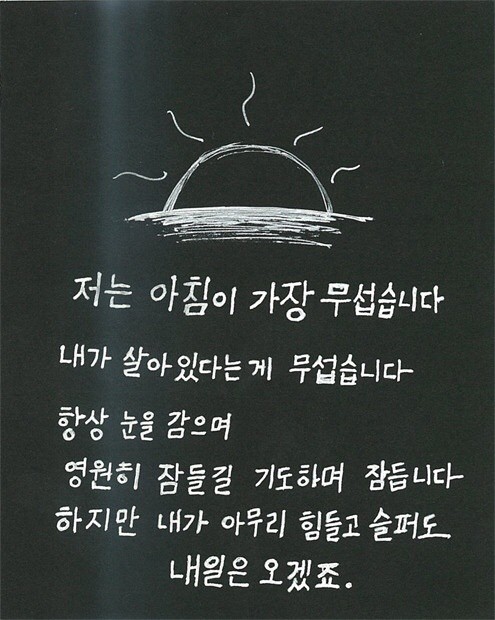 저는 아침이 가장 무섭습니다
내가 살아있다는게 무섭습니다
항상 눈을 감으며
영원히 잠들길 기도하며 잠듭니다
하지만 내가 아무리 힘들고 슬퍼도
내일은 오겠죠.